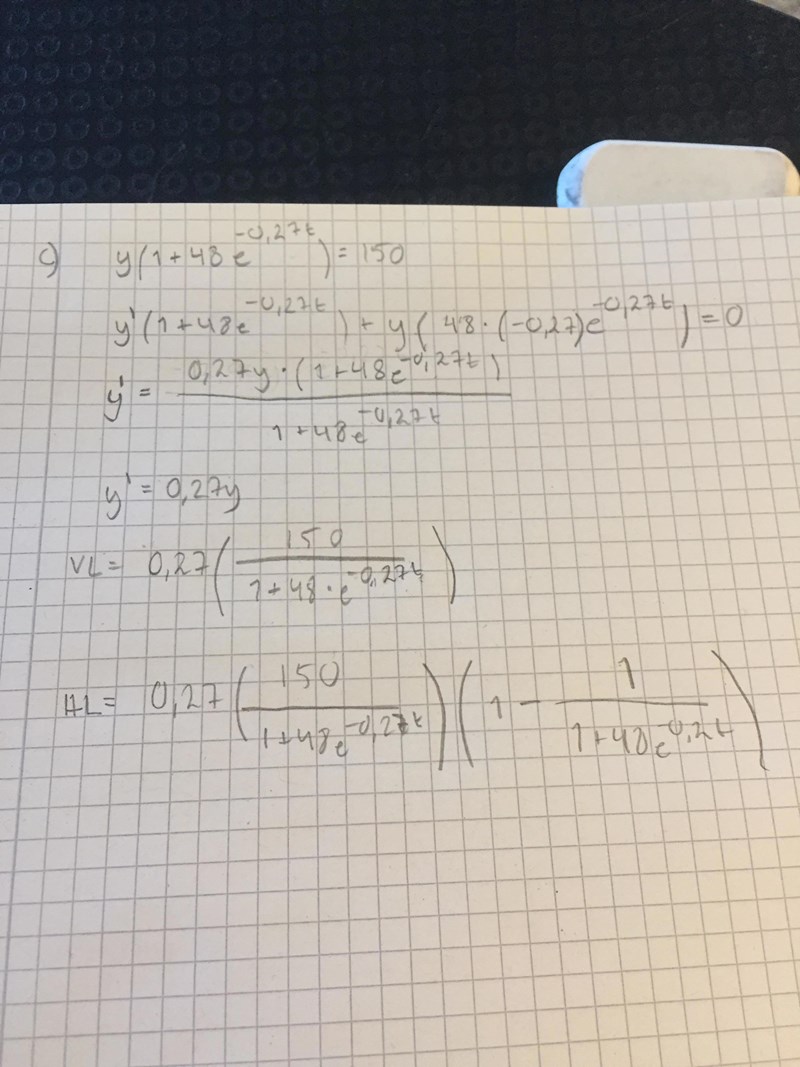 c) y(1+48e^{-0,27t}) = 150
y'(1+48e^{-0,27t}) + y(48·(-0,27)e^{-0,27t}) = 0
y' = \frac{0,27y·(1+48e^{-0,27t})}{1+48e^{-0,27t}}
y' = 0,27y
VL = 0,27(\frac{150}{1+48·e^{-0,27t}})
HL = 0,27(\frac{150}{1+48e^{-0,27t}})(1-\frac{1}{1+48e^{-0,2t}})